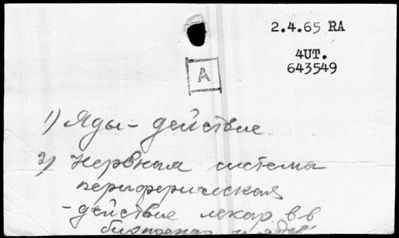 2.4.65 RA
4UT.
643549
A
1) Яды – действие
2) Нервная система
периферическая
– действие лекар. в-в